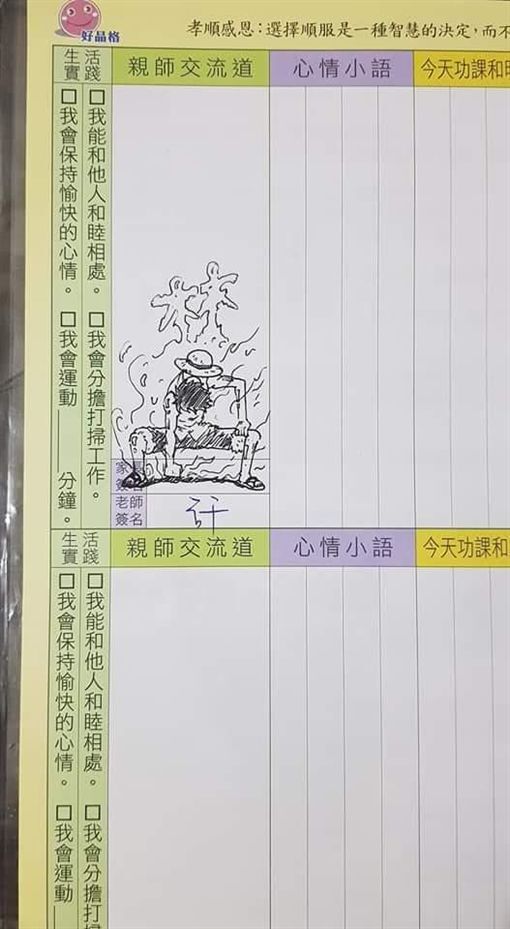 好品格
孝順感恩：選擇順服是一種智慧的決定，而不
生活
實踐
親師交流道
心情小語
今天功課和
□我能和他人和睦相處。 □我會分擔打掃工作。
□我會保持愉快的心情。 □我會運動____分鐘。
家
簽名
老師
簽名
生活
實踐
親師交流道
心情小語
今天功課和
□我能和他人和睦相處。 □我會分擔打掃
□我會保持愉快的心情。 □我會運動